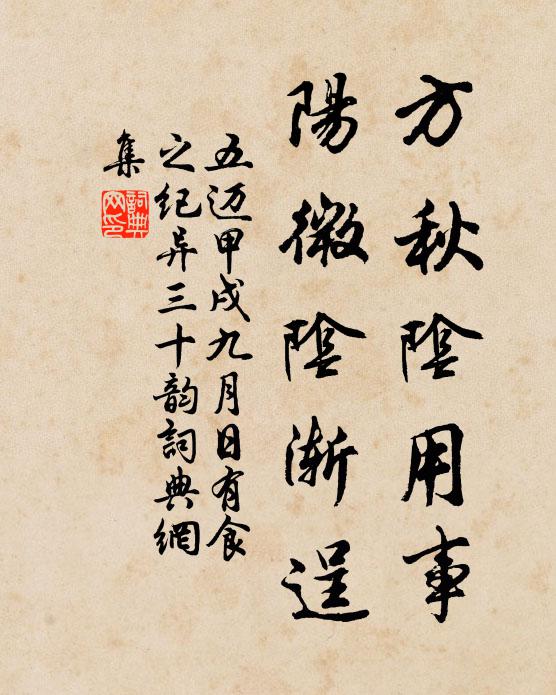 方秋陰用事
陽微陰漸逞
五迈甲戌九月日有食
之纪异三十韵詞典網
集
詞典
网印